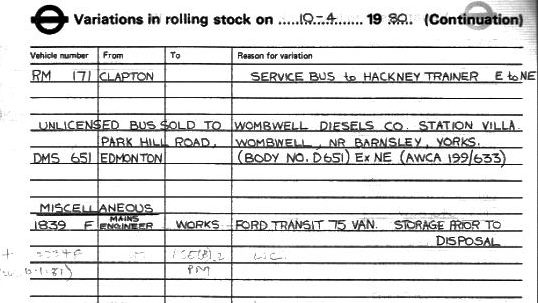 Variations in rolling stock on .....10-4...... 19 80.. (Continuation)
Vehicle number From To Reason for variation
RM 171 CLAPTON SERVICE BUS to HACKNEY TRAINER E to NE
UNLICENSED BUS SOLD TO WOMBWELL DIESELS CO. STATION VILLA.
PARK HILL ROAD, WOMBWELL, NR BARNSLEY, YORKS.
DMS 651 EDMONTON (BODY NO. D651) Ex NE (AWCA 199/633)
MISCELLANEOUS
1839 F MAINS ENGINEER WORKS FORD TRANSIT 75 VAN. STORAGE PRIOR TO
DISPOSAL
PM